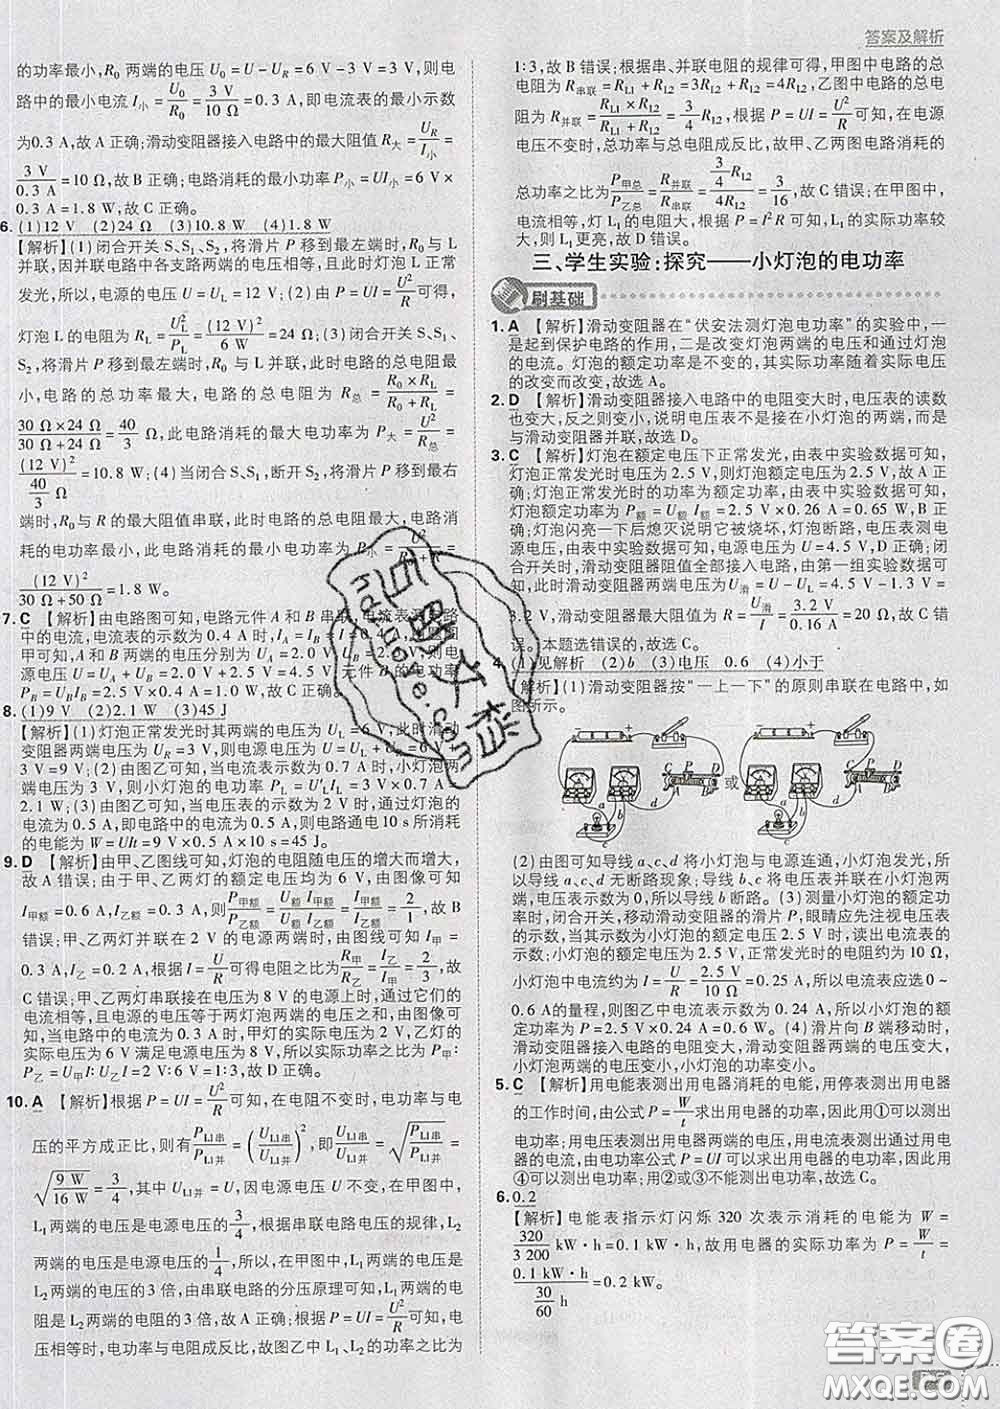 答案及解析
的功率最小,R₀ 两端的电压 U₀ = U - U_R = 6 V - 3 V = 3 V,则电
路中的最小电流 I小 = U₀/R₀ = 3 V/10 Ω = 0.3 A,即电流表的最小示数
为0.3 A,故 A 正确;滑动变阻器接入电路中的最大阻值 R大 = U_R/I小 =
3 V/0.3 A = 10 Ω,故 B 正确;电路消耗的最小功率 P小 = UI小 = 6 V ×
0.3 A = 1.8 W,故 C 正确。
6. (1)12 V (2)24 Ω (3)10.8 W (4)1.8 W
【解析】(1)闭合开关 S、S₁、S₂,将滑片 P 移到最左端时,R₀ 与 L
并联,因电路中各支路两端的电压相等,且此时灯泡 L 正常
发光,所以,电源的电压 U = U_L = 12 V;(2)由 P = UI = U²/R 可得,
灯泡 L 的电阻为 R_L = U_L²/P_L = (12 V)²/6 W = 24 Ω;(3)闭合开关 S、S₁、
S₂,将滑片 P 移到最左端时,R₀ 与 L 并联,此时电路的总电阻最
小,电路的总功率最大,因此,电路的总电阻为 R总 = R₀ × R_L/(R₀ + R_L) =
30 Ω × 24 Ω/(30 Ω + 24 Ω) = 40/3 Ω,此电路消耗的最大电功率为 P大 = U²/R总 =
(12 V)²/(40/3 Ω) = 10.8 W;(4)当闭合 S、S₁,断开 S₂,将滑片 P 移到最右
端时,R₀与 R 的最大阻值串联,此时电路的总电阻最大,电路消
耗的电功率最小,此电路消耗的最小电功率为 P小 = U²/(R + R₀) =
(12 V)²/(30 Ω + 50 Ω) = 1.8 W。
7. C 【解析】由电路图可知,电路元件 A 和 B 串联,电流表测电路
中的电流,电流表的示数为 0.4 A 时,I_A = I_B = I = 0.4 A,由图
甲可知,A 和 B 两端的电压分别为 U_A = 2.0 V、U_B = 2.5 V,则电
源电压 U = U_A + U_B = 2.0 V + 2.5 V = 4.5 V,元件 B 的电功率
P_B = U_B I_B = 2.5 V × 0.4 A = 1 W,故选 C。
8. (1)9 V (2)2.1 W (3)45 J
【解析】(1)灯泡正常发光时其两端的电压为 U_L = 6 V,此时滑动
变阻器两端的电压为 U_R = 3 V,则电源电压为 U = U_L + U_R = 6 V +
3 V = 9 V;(2)由图乙可知,当电流表示数为 0.7 A 时,小灯泡两
端电压为 3 V,则小灯泡的电功率 P_L = U′_L I_L = 3 V × 0.7 A =
2.1 W;(3)由图乙可知,当电压表的示数为 2 V 时,通过灯泡的
电流为 0.5 A,即电路中的电流为 0.5 A,则电路通电 10 s 所消耗
的电能为 W = UIt = 9 V × 0.5 A × 10 s = 45 J。
9. D 【解析】由甲、乙图线可知,灯泡的电阻随电压的增大而增大,
故 A 错误;由于甲、乙两灯的额定电压均为 6 V,由图像可知
I甲额 = 0.6 A,I乙额 = 0.3 A,则 P甲额/P乙额 = U额I甲额/U额I乙额 = I甲额/I乙额 = 2/1,故 B
错误;甲、乙两灯并联在 2 V 的电源两端时,由图线可知 I甲 =
0.3 A,I乙 = 0.2 A,根据 I = U/R 可得电阻之比 R甲/R乙 = I乙/I甲 = 2/3,故
C错误;甲、乙两灯串联接在电压为 8 V 的电源上时,通过它们
的电流相等,且电源的电压等于两灯泡两端的电压之和,由图像可
知,当电路中的电流为 0.3 A 时,甲灯的实际电压为 2 V,乙灯的
实际电压为 6 V 满足电源电压为 8 V,所以,实际功率之比 P甲:
P乙 = U甲I:U乙I = 2 V:6 V = 1:3,故 D 正确。
10. A 【解析】根据 P = UI = U²/R 可知,在电阻不变时,电功率与电
压的平方成正比,则有 P_L1串/P_L1并 = (U_L1串/U_L1并)²,即 U_L1串/U_L1并 = √(P_L1串/P_L1并) =
√(9 W/16 W) = 3/4,其中 U_L1并 = U,因电源电压 U 不变,在甲图中,
L₁两端的电压是电源电压的 3/4,根据串联电路电压的规律,L₂
两端的电压是电源电压的 1/4,所以在甲图中,L₁两端的电压是
L₂两端电压的 3 倍,由串联电路的分压原理可知,L₁ 的电
阻是 L₂ 电阻的 3 倍,故 A 正确;根据 P = UI = U²/R 可知,当两端
电压相等时,电功率与电阻成反比,故图乙中 L₁、L₂ 的功率之比为
1:3,故 B 错误;根据串、并联电阻的规律可得,甲图中电路的总
电阻为 R串联 = R_L1 + R_L2 = 3R_L2 + R_L2 = 4R_L2,乙图中电路的总电
阻为 R并联 = R_L1 × R_L2/(R_L1 + R_L2) = 3/4 R_L2,根据 P = UI = U²/R 可知,在电源
电压不变时,总功率与总电阻成反比,故甲、乙两图电路消耗的
总功率之比为 P甲总/P乙总 = R并联/R串联 = (3/4 R_L2)/4R_L2 = 3/16,故 C 错误;在甲图中,
电流相等,灯 L₁ 的电阻大,根据 P = I²R 可知,L₁的实际功率较
大,则 L₁更亮,故 D 错误。
三、学生实验:探究——小灯泡的电功率
刷基础
1. A 【解析】滑动变阻器在“伏安法测灯泡电功率”的实验中,一
是起到保护电路的作用,二是改变灯泡两端的电压和通过灯泡
的电流。灯泡的额定功率是不变的,其实际功率随着实际电压
的改变而改变,故选 A。
2. D 【解析】滑动变阻器接入电路中的电阻变大时,电压表的读数
也变大,反之则变小,说明电压表不是接在小灯泡的两端,而是
与滑动变阻器并联,故选 D。
3. C 【解析】灯泡在额定电压下正常发光,由表中实验数据可知,
灯泡正常发光时电压为 2.5 V,则灯泡额定电压为 2.5 V,故 A 正
确;灯泡正常发光时的功率为额定功率,由表中实验数据可知,
灯泡额定功率为 P额 = U额I额 = 2.5 V × 0.26 A = 0.65 W,B 正
确;灯泡闪亮一下后熄灭说明它被烧坏,灯泡断路,电压表测电
源电压,由表中实验数据可知,电源电压为 U = 4.5 V,D 正确;闭
合开关时,滑动变阻器阻值全部接入电路中,由第一组实验数据
可知,此时滑动变阻器两端电压为 U滑 = U - U_L = 4.5 V - 1.3 V =
3.2 V,滑动变阻器最大阻值为 R = U滑/I = 3.2 V/0.16 A = 20 Ω,故 C 错
误。本题选错误的,故选 C。
4. (1)见解析 (2)b (3)电压 0.6 (4)小于
【解析】(1)滑动变阻器按“一上一下”的原则串联在电路中,如
图所示。
C P D
A B
a
b
c
d
或
C P D
A B
a
b
c
d
(2)由图可知导线 a、c、d 将小灯泡与电源连通,小灯泡发光,所
以导线 a、c、d 无断路现象;导线 b、c 将电压表并联在小灯泡两
端,电压表示数为 0,所以导线 b 断路。(3)测量小灯泡的额定功
率时,闭合开关,移动滑动变阻器的滑片 P,眼睛应先注视电压表
的示数,当其示数为小灯泡的额定电压 2.5 V 时,读出电流表的
示数,灯泡正常发光时的电阻约为 10 Ω,则正常发光时通过小
灯泡中电流约为 I = U/R = 2.5 V/10 Ω = 0.25 A,所以电流表应选 0~
0.6 A的量程,则图乙中电流表示数为 0.24 A,所以小灯泡的额
定功率为 P = 2.5 V × 0.24 A = 0.6 W。(4)滑片向 B 端移动时,
滑动变阻器接入电路的电阻变大,滑动变阻器两端的电压变大,
小灯泡两端的电压变小,小灯泡的功率变小。
5. C 【解析】用电能表测出用电器消耗的电能,用停表测出用电器
的工作时间,由公式 P = W/t 求出用电器的功率,因此用①可以测出
电功率;用电压表测出用电器两端的电压,用电流表测出通过用电
器的电流,由电功率公式 P = UI 可以求出用电器的电功率,因此用
④可以测出电功率;用②或③不能测定电功率,故选 C。
6. 0.2
【解析】电能表指示灯闪烁 320 次表示消耗的电能为 W =
320/3 200 kW·h = 0.1 kW·h,故用电器的实际功率为 P = W/t =
0.1 kW·h/(30/60 h) = 0.2 kW。
答案圈
MXQE.COM